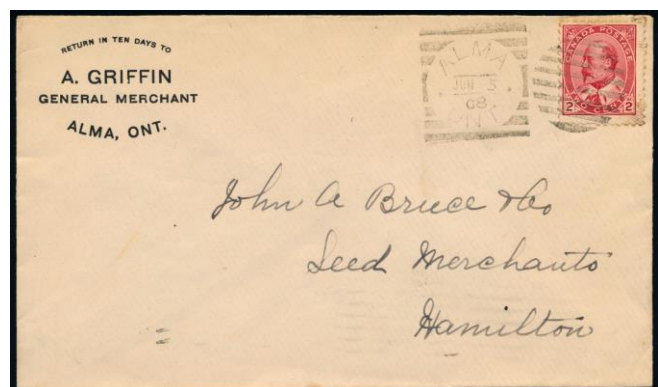 RETURN IN TEN DAYS TO
A. GRIFFIN
GENERAL MERCHANT
ALMA, ONT.
ALMA
JUN 3
08
ONT
CANADA POSTAGE
2 TWO CENTS 2
John A Bruce & Co
Seed Merchants
Hamilton